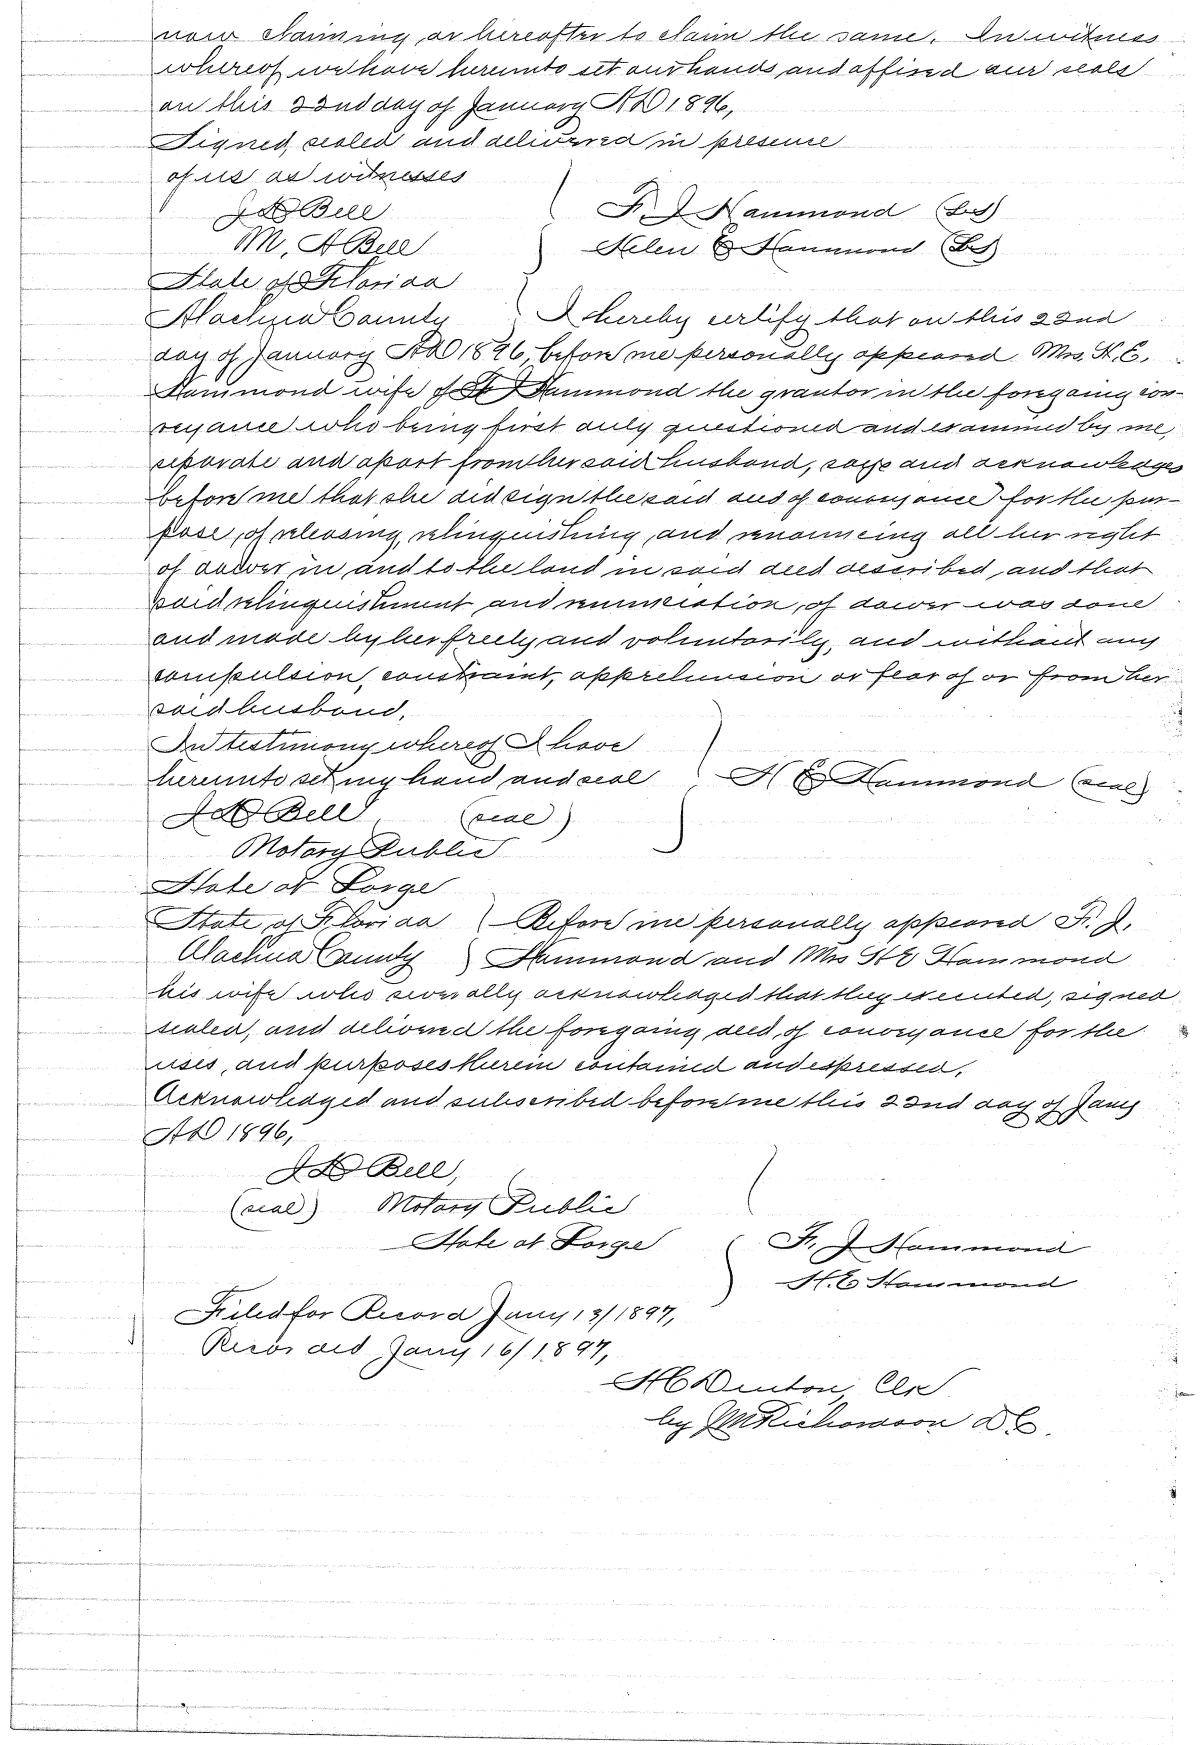 now claiming or hereafter to claim the same. In witness
whereof we have hereunto set our hands and affixed our seals
on this 22nd day of January AD 1896,
Signed, sealed and delivered in presence
of us as witnesses
J A Bell F. J Hammond (LS)
M, A Bell Helen E Hammond (LS)
State of Florida
Alachua County I hereby certify that on this 22nd
day of January AD 1896, before me personally appeared Mrs. H. E.
Hammond wife of F J Hammond the grantor in the foregoing con-
veyance who being first duly questioned and examined by me,
separate and apart from her said husband, says and acknowledges
before me that she did sign the said deed of conveyance for the pur-
pose, of releasing, relinquishing, and renouncing all her right
of dower in and to the land in said deed described, and that
said relinquishment and renunciation, of dower was done
and made by her freely and voluntarily, and without any
compulsion, constraint, apprehension or fear of or from her
said husband,
In testimony whereof I have
hereunto set my hand and seal H E Hammond (seal)
J A Bell (seal)
Notary Public
State at Large
State of Florida Before me personally appeared F. J,
Alachua County Hammond and Mrs H E Hammond
his wife who severally acknowledged that they executed, signed
sealed, and delivered the foregoing deed, of conveyance for the
uses, and purposes therein contained and expressed,
Acknowledged and subscribed before me this 22nd day of Jany
AD 1896,
J A Bell,
(seal) Notary Public
State at Large F. J Hammond
H. E Hammond
Filed for Record Jany 13/1897,
Recorded Jany 16/1897,
H C Denton, Clk
by J M Richardson D C.